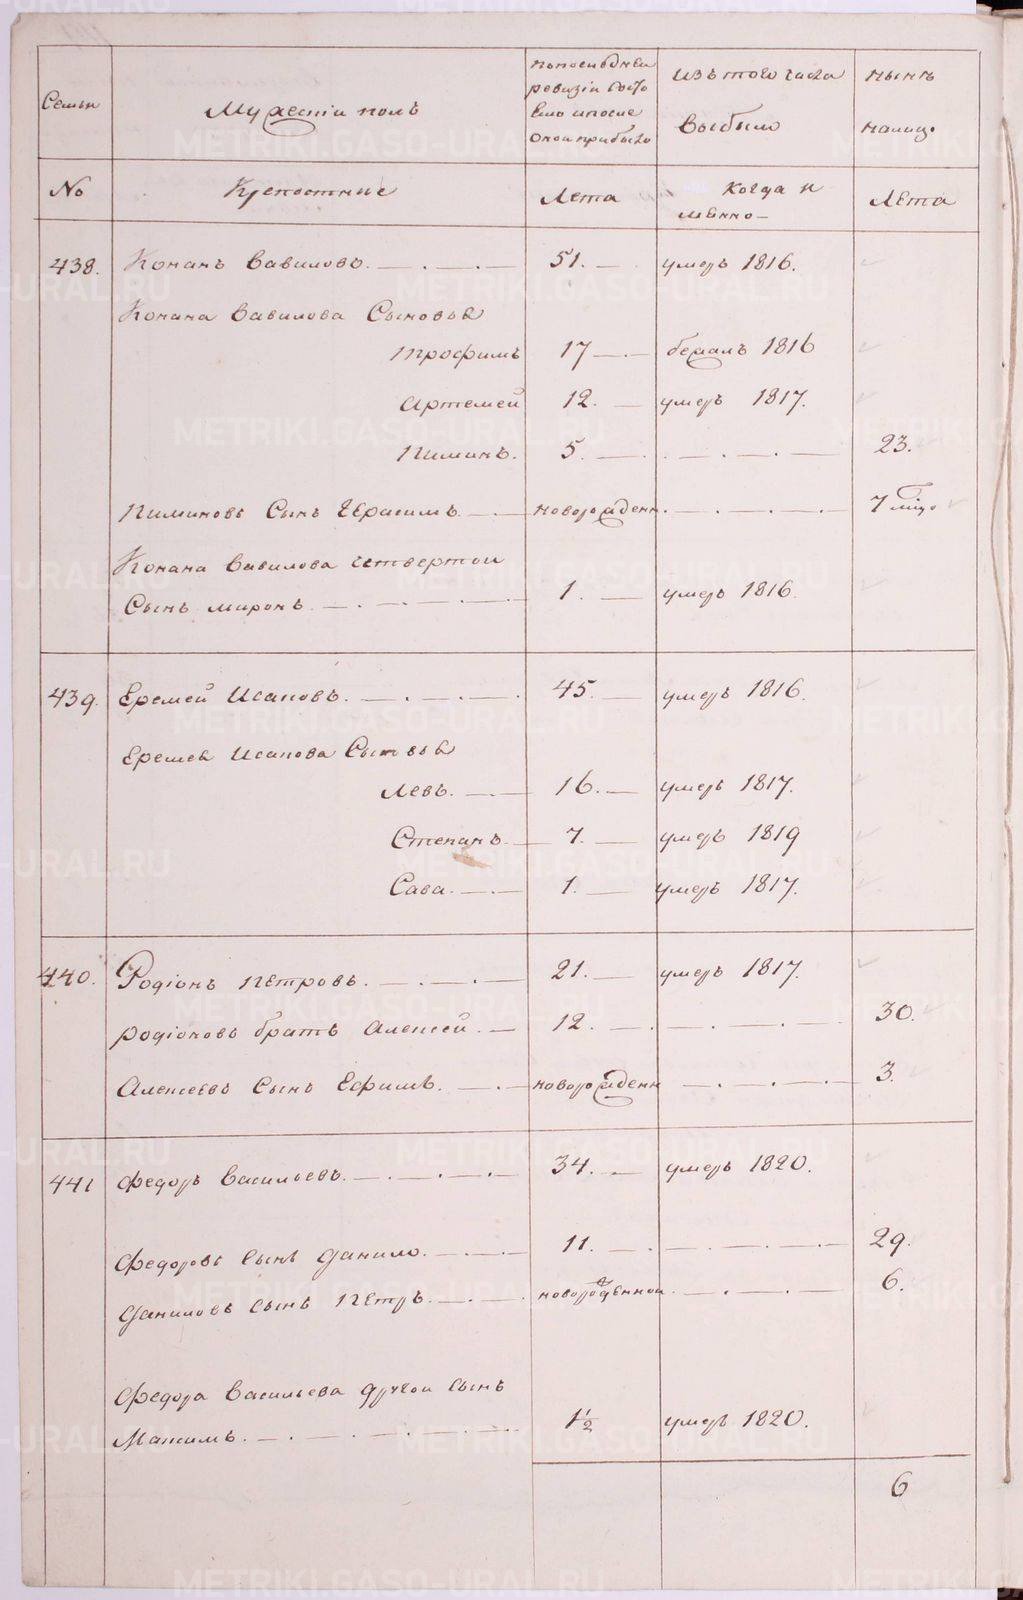 Семьи Мужескiй полъ попоследней ревизiи состо ело ипосле оной прибыло Изъ того числа Выбыло нынѣ налицо
No Крепостные Лета Когда и мѣнно Лета
438. Конанъ Вавиловъ. 51. умеръ 1816.
Конана Вавилова Сыновья
Трофимъ 17 бежалъ 1816
Артемей 12. умеръ 1817.
Пиминъ. 5. 23.
Пиминовъ Сынъ Герасимъ новорожденн. 7 мѣцо
Конана Вавилова четвертой
Сынъ миронъ 1. умеръ 1816.
439. Еремей Исаковъ. 45. умеръ 1816.
Еремея Исакова Сыновья
Левъ. 16. умеръ 1817.
Степанъ. 7. умеръ 1819
Сава. 1. умеръ 1817.
440. Родiонъ Петровъ. 21. умеръ 1817.
родiоновъ братъ Алексей. 12. 30.
Алексеевъ Сынъ Ефимъ. новорожденн 3.
441 Федоръ Васильевъ. 34. умеръ 1820.
Федоровъ Сынъ Данило. 11. 29.
Даниловъ Сынъ Петръ. новорожденной 6.
Федора Васильева другой Сынъ
Максимъ. 1 1/2 умеръ 1820.
6
METRIKI.GASO-URAL.RU